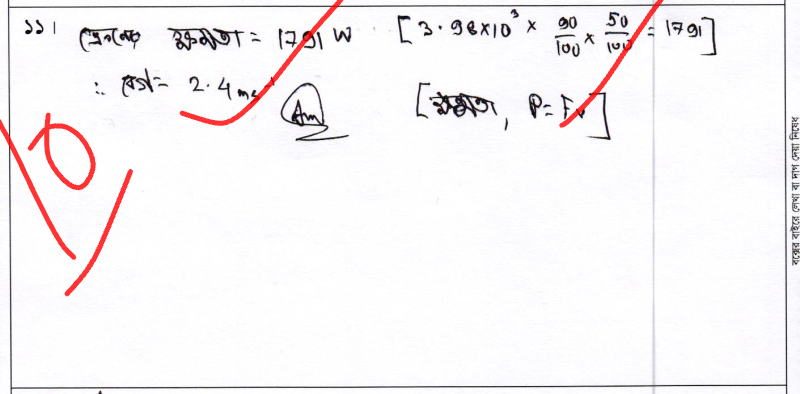 ১১। ক্রেনের ক্ষমতা = 1791 W [3.98×10³ × 90/100 × 50/100 = 1791]
∴ বেগ = 2.4 ms⁻¹ Ans [ক্ষমতা, P = Fv]
10
বক্সের বাইরে লেখা বা দাগ দেয়া নিষেধ